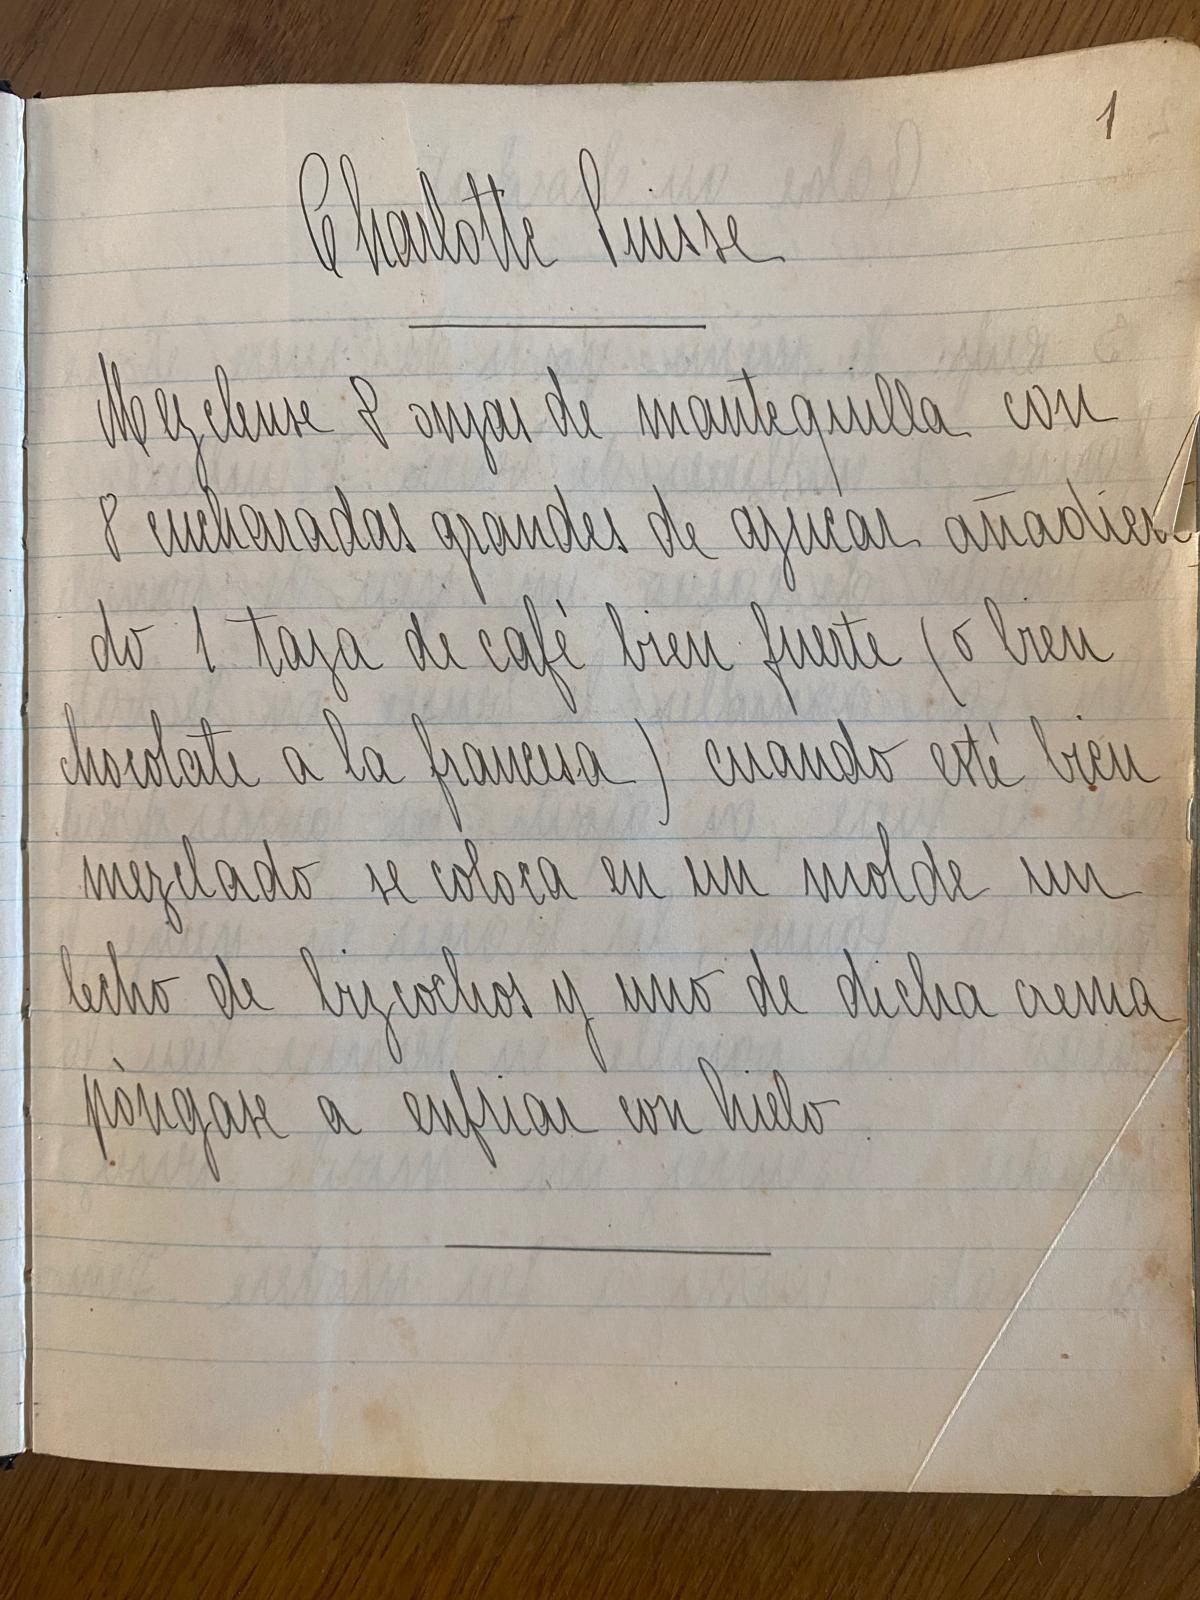 1
Charlotte Suisse
Mezclense 8 onzas de mantequilla con
8 cucharadas grandes de azúcar añadien
do 1 taza de café bien fuerte (o bien
chocolate a la francesa) cuando esté bien
mezclado se coloca en un molde un
lecho de bizcochos y uno de dicha crema
pòngase a enfriar con hielo